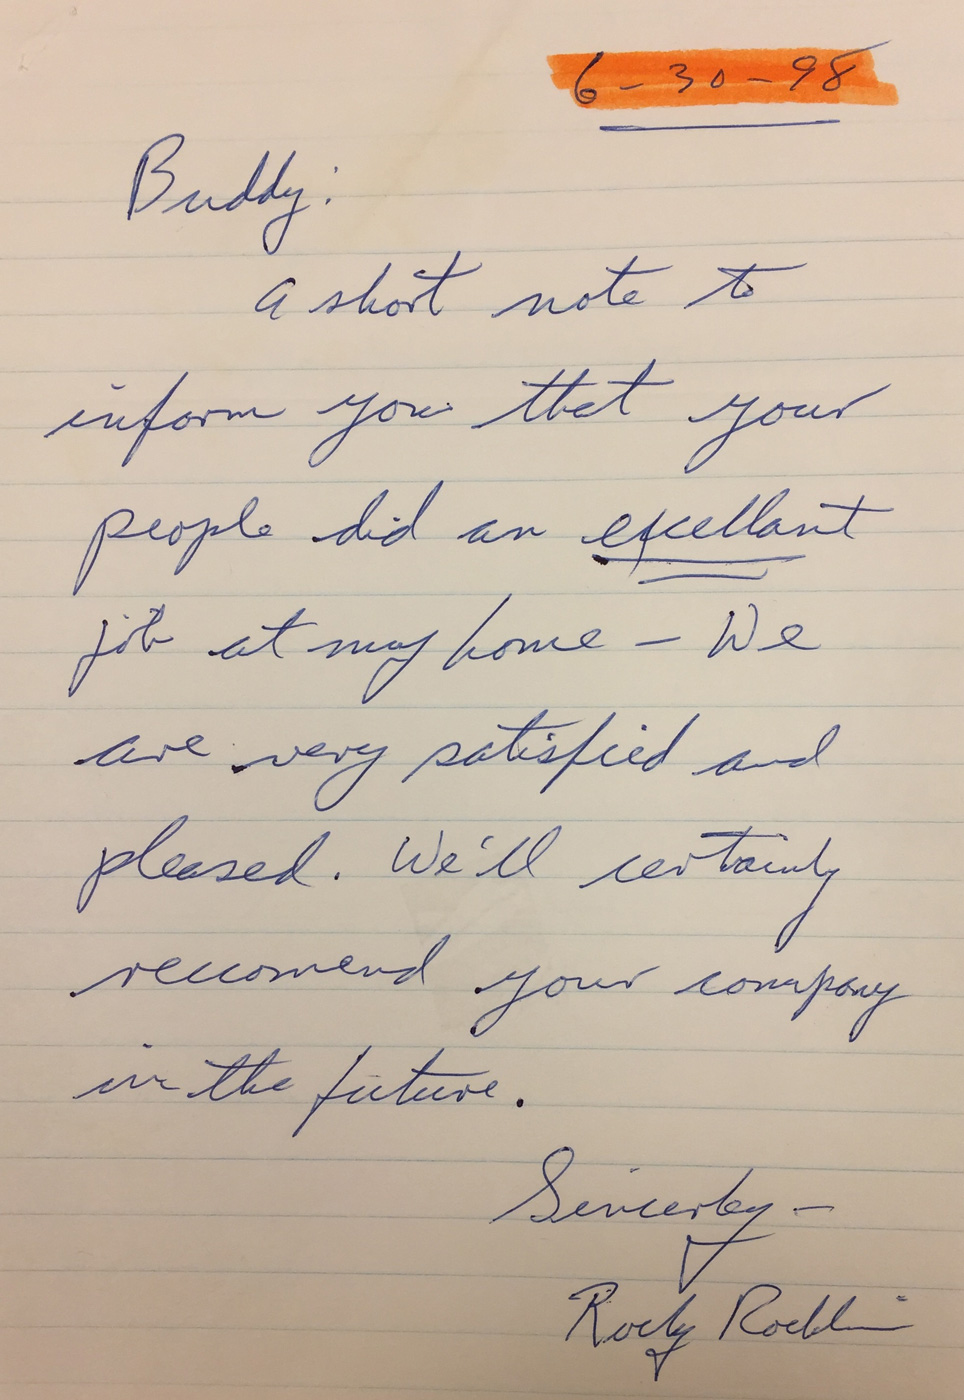 6-30-98
Buddy:
A short note to
inform you that your
people did an excellant
job at my home - We
are very satisfied and
pleased. We'll certainly
reccomend your company
in the future.
Sincerley -
Rocky